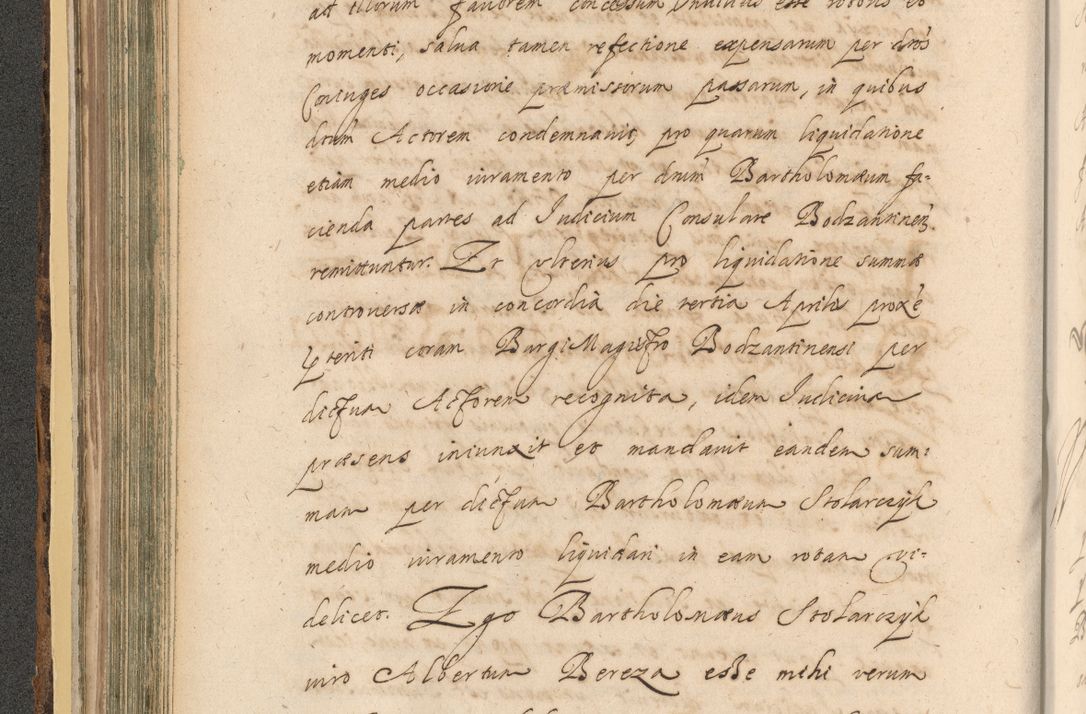 ad illorum favorem concessum Invalidus esse roboris et
momenti, salva tamen refectione expensarum per dnōs
Coniuges occasione præmissorum passarum, in quibus
dnum Actorem condemnavit, pro quarum liquidatione
etiam medio iuramento per dnum Bartholomæum fa=
cienda partes ad Iudicium Consulare Bodzantinen.
remittuntur. Et ulterius pro liquidatione summæ
controversæ in concordia die tertia Aprilis proxe
pteriti coram BurgiMagistro Bodzantinensi per
dictum Actorem recognita, idem Iudicium
præsens iniunxit et mandavit eandem sum:
mam per dictum Bartholomæum Stolarczyk
medio iuramento liquidari in eam rotam vi=
delicet. Ego Bartholomæus Stolarczyk
iuro Albertum Bereza esse mihi verum